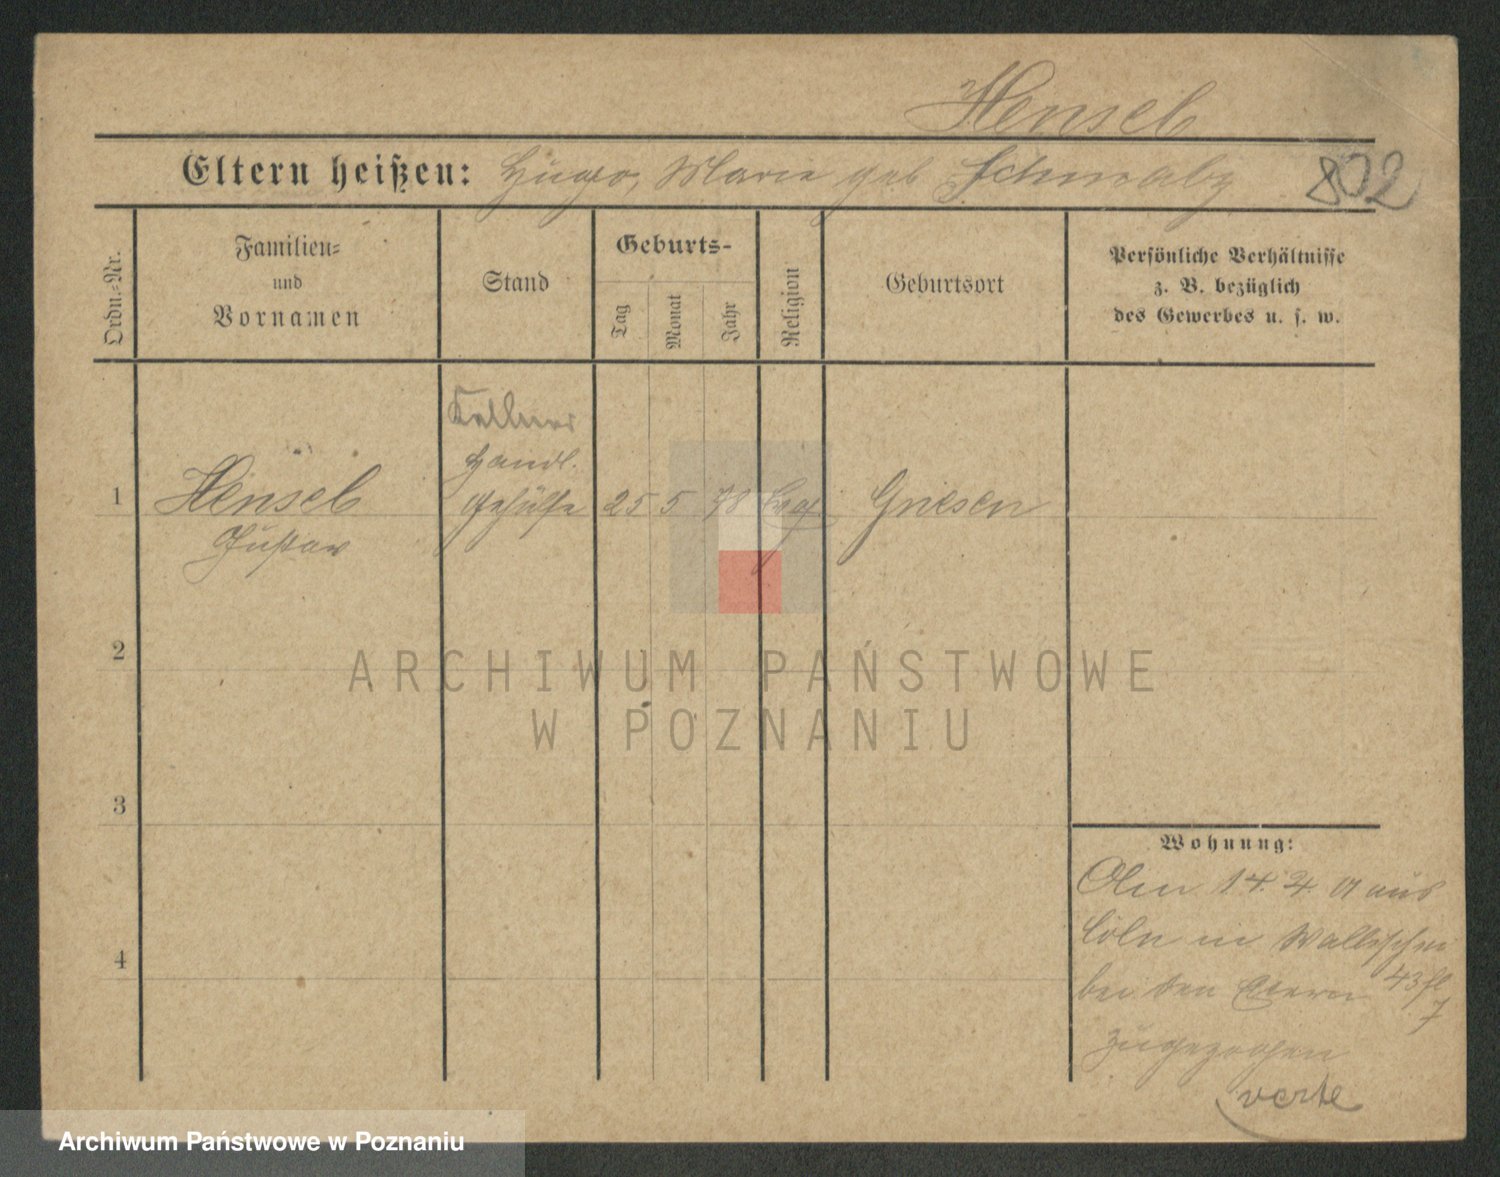 Hensel
Eltern heißen: Hugo, Marie geb Schwalbe
802
Ordn.-Nr.
Familien-
und
Vornamen
Stand
Geburts-
Tag
Monat
Jahr
Religion
Geburtsort
Persönliche Verhältnisse
z. B. bezüglich
des Gewerbes u. s. w.
Kellner
Handl.
1 Hensel gehülfe 25 5 78 Evg Gnesen
Gustav
2
ARCHIWUM PAŃSTWOWE
W POZNANIU
3
4
Wohnung:
14. 2. aus
Cöln in Wallischei
bei den Eltern 43
7
zugezogen
verte
Archiwum Państwowe w Poznaniu